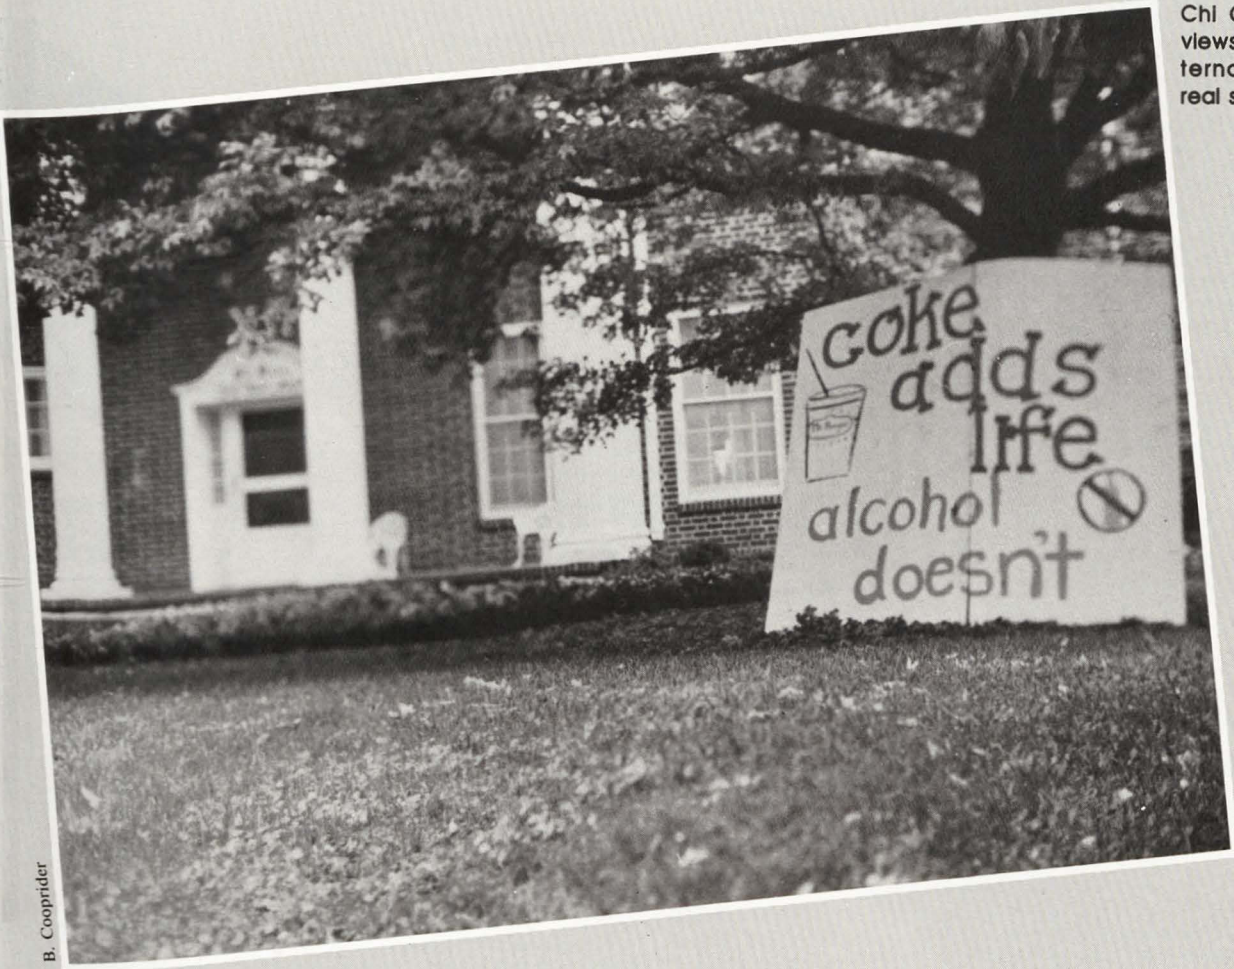 Chi
views
real
coke
adds
life
alcohol
doesn't
B. Cooprider